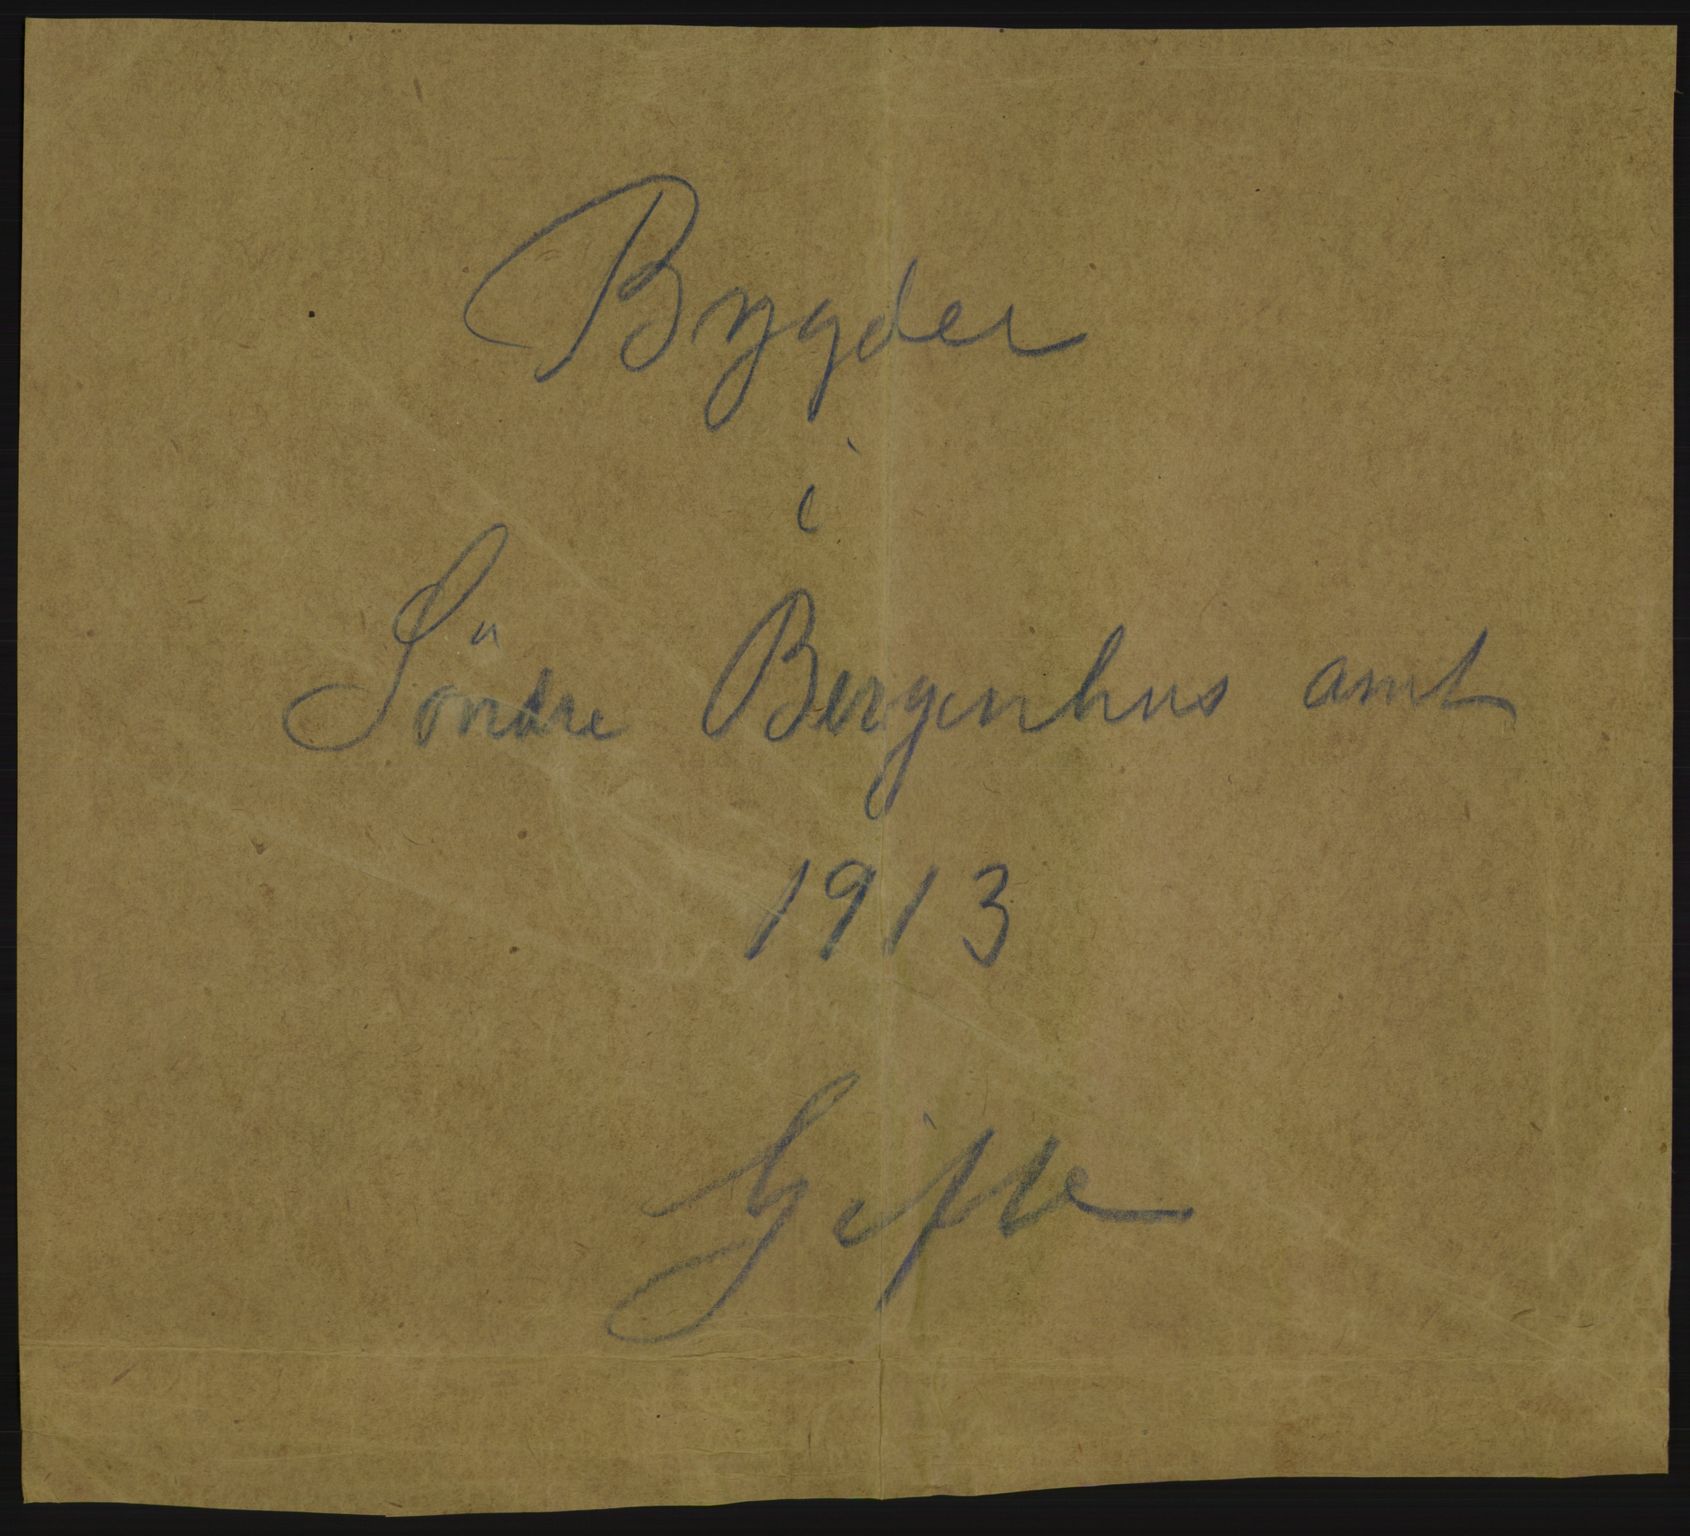 Bygder
i
Söndre Bergenhus amt
1913
Gifte